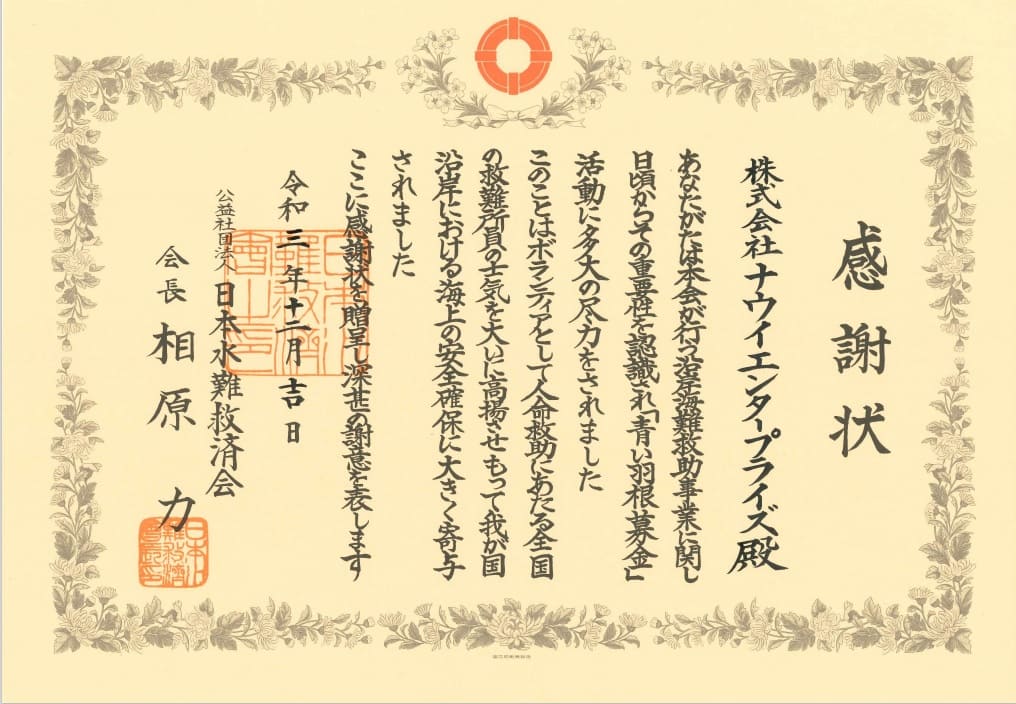 感謝状
株式会社ナウイエンタープライズ殿
あなたがたは本会が行う沿岸海難救助事業に関し
日頃からその重要性を認識され「青い羽根募金」
活動に多大の尽力をされました
このことはボランティアとして人命救助にあたる全国
の救難所員の士気を大いに高揚させもって我が国
沿岸における海上の安全確保に大きく寄与
されました
ここに感謝状を贈呈し深甚の謝意を表します
令和三年十二月吉日
公益社団法人日本水難救済会
会長相原力